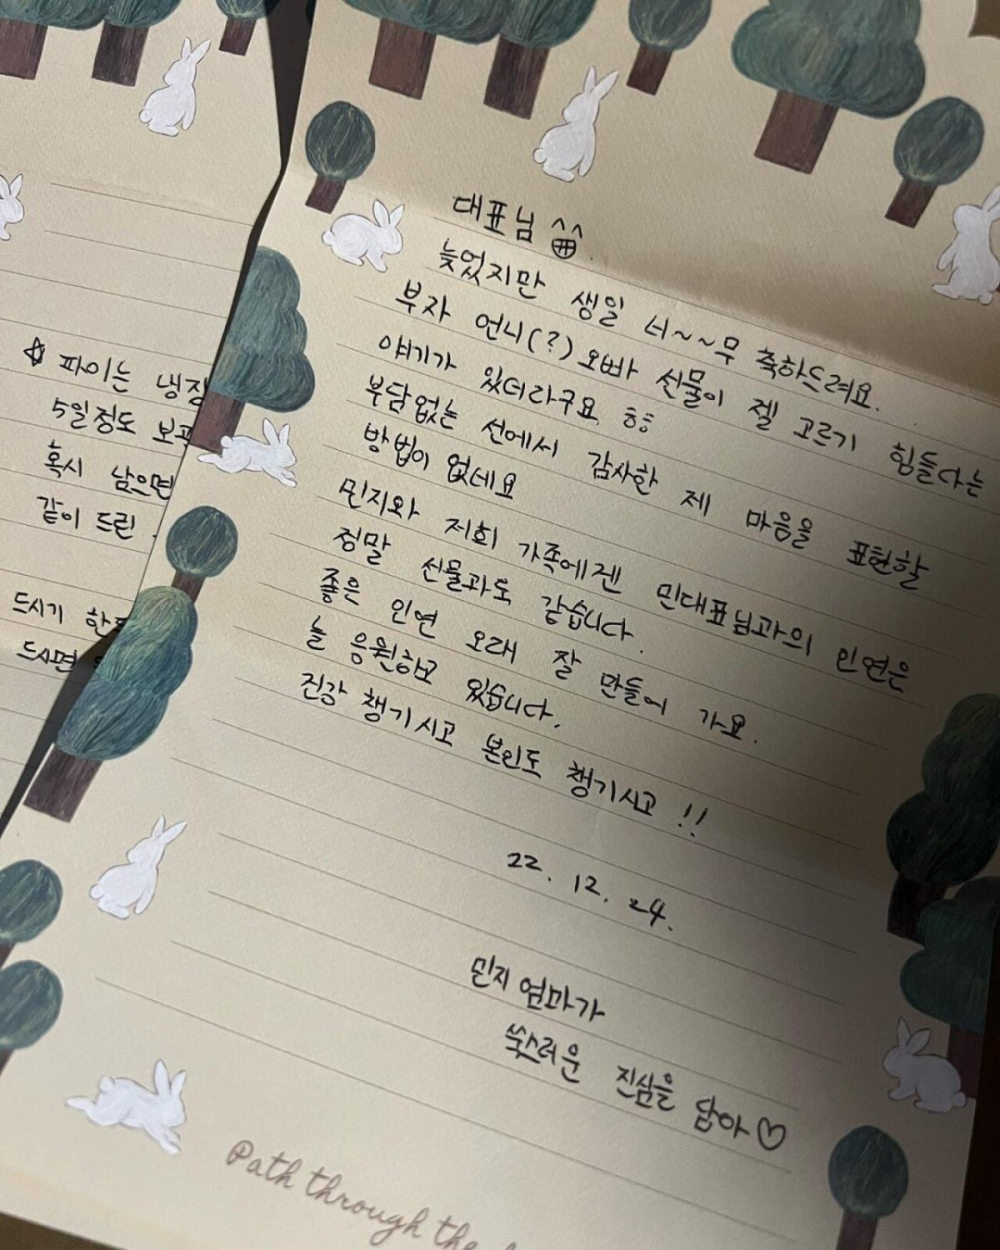 ☆ 파이는 냉장
5일정도 보관
혹시 남으면
같이 드린
드시기 한
드시면
대표님
늦었지만 생일 너~~무 축하드려요.
부자 언니(?) 오빠 선물이 젤 고르기 힘들다는
얘기가 있더라구요 ㅎㅎ
부담없는 선에서 감사한 제 마음을 표현할
방법이 없네요
민지와 저희 가족에겐 민대표님과의 인연은
정말 선물과도 같습니다.
좋은 인연 오래 잘 만들어 가요.
늘 응원하고 있습니다.
진강 챙기시고 본인도 챙기시고 !!
22. 12. 24.
민지 엄마가
쑥스러운 진심을 담아♡
Path through the